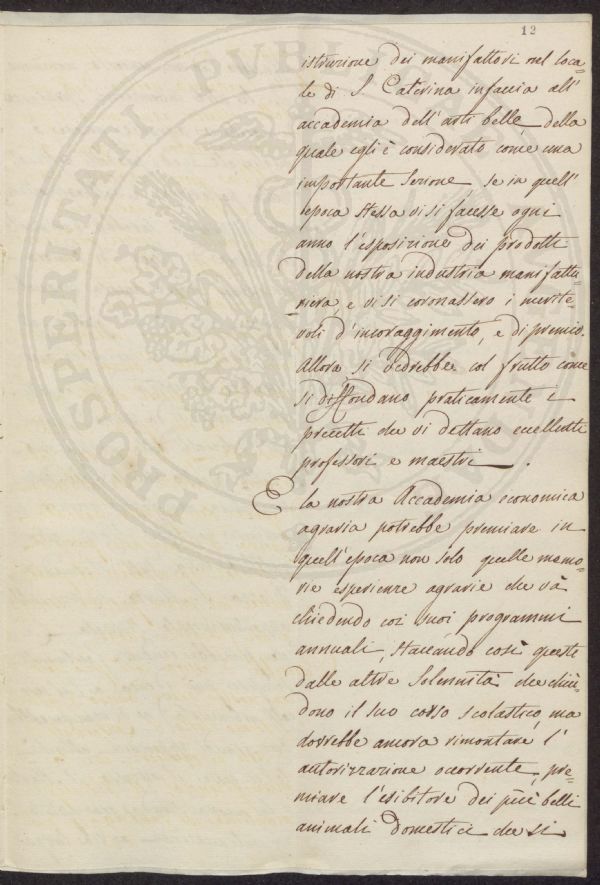 12
PROSPERITATI PVBLICAE
istruzione dei manifattori nel loca=
le di S. Caterina in faccia all'
accademia dell'arti belle, della
quale egli è considerato come una
importante Sezione, se in quell'
epoca stessa vi si facesse ogni
anno l'esposizione dei prodotti
della nostra industria manifattu=
riera, e vi si coronassero i merite=
voli d'incoraggimento, e di premio.
Allora si vedrebbe col frutto come
si diffondano praticamente i
precetti che vi dettano eccellenti
professori e maestri.
E la nostra Accademia economica
agraria potrebbe premiare in
quell'epoca non solo quelle memo=
rie esperienze agrarie che và
chiedendo coi suoi programmi
annuali, staccando così queste
dalle altre Solennità che chiu=
dono il suo corso scolastico, ma
dovrebbe ancora rimontare l'
autorizzazione occorrente, pre=
miare l'esibitore dei più belli
animali domestici che si